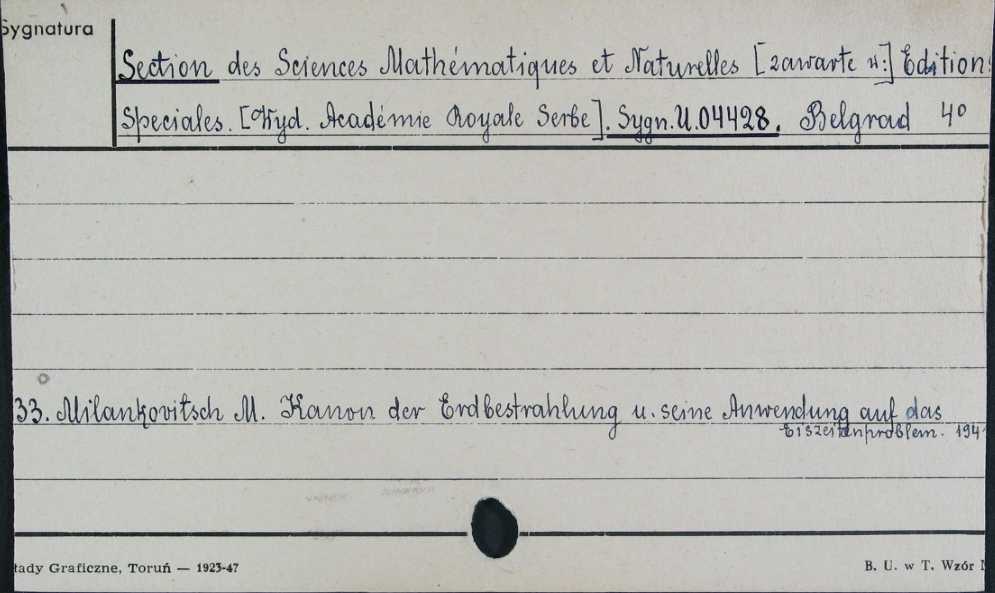 Sygnatura
Section des Sciences Mathématiques et Naturelles [zawarte w:] Edition
Speciales. [Wyd. Académie Royale Serbe]. Sygn. U.04428. Belgrad 4º
33. Milankovitsch M. Kanon der Erdbestrahlung u. seine Anwendung auf das
Eiszeitenproblem. 194
łady Graficzne, Toruń — 1923-47
B. U. w T. Wzór